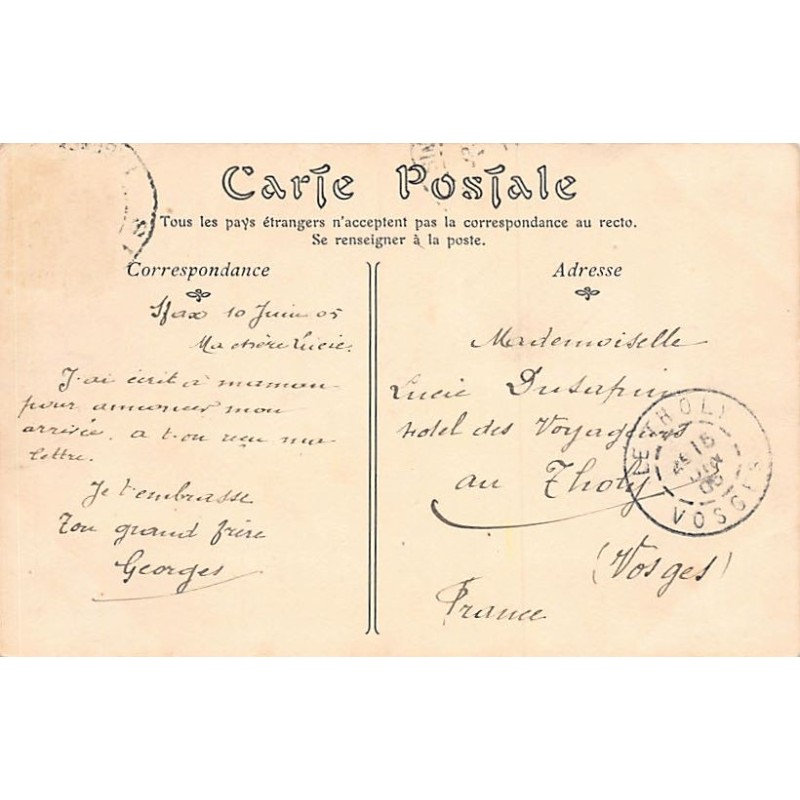 Carte Postale
Tous les pays étrangers n'acceptent pas la correspondance au recto.
Se renseigner à la poste.
Correspondance
Sfax 10 Juin 05
Ma chère Lucie.
J'ai écrit à maman
pour annoncer mon
arrivée, a t-on reçu ma
lettre.
Je t'embrasse
Ton grand frère
Georges
Adresse
Mademoiselle
Lucie Dusapin
Hotel des Voyageurs
au Tholy
(Vosges)
France
LE THOLY
16
JUIN
05
VOSGES